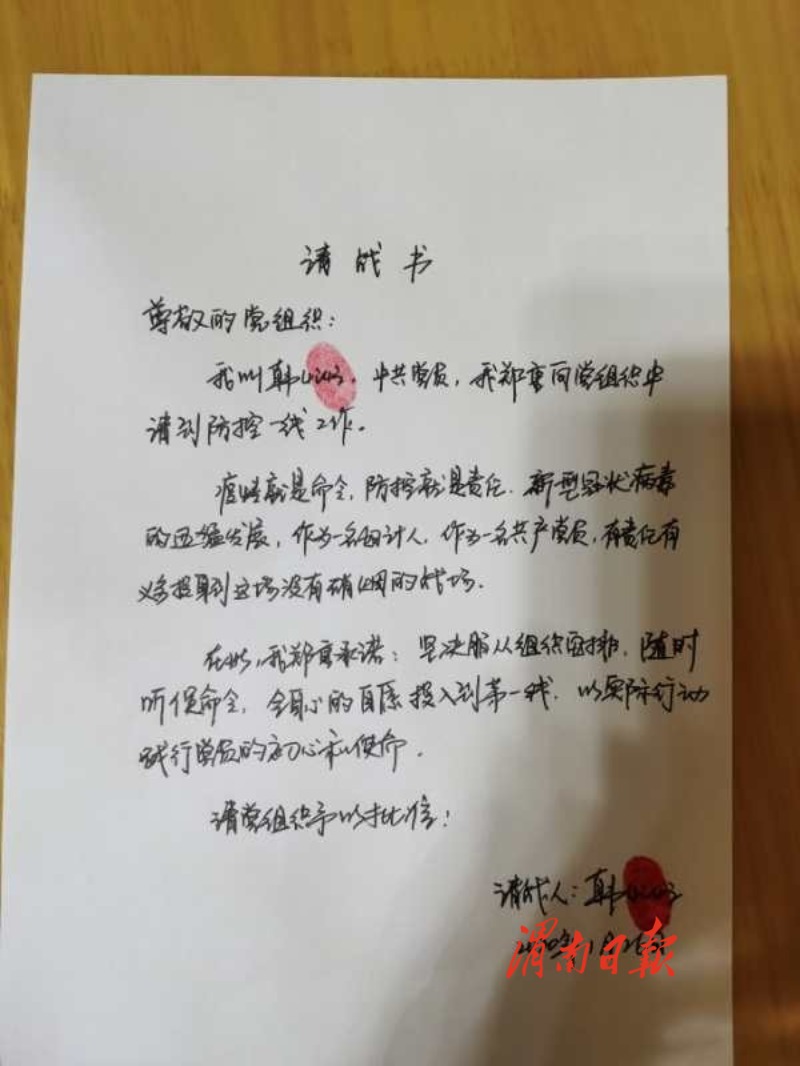 请战书
尊敬的党组织：
我叫韩，中共党员，我郑重向党组织申
请到防控一线工作。
疫情就是命令，防控就是责任，新型冠状病毒
的迅猛发展，作为一名审计人，作为一名共产党员，有责任有
义务投身到这场没有硝烟的战场。
在此，我郑重承诺：坚决服从组织安排，随时
听候命令，全身心的自愿投入到第一线，以实际行动
践行党员的初心和使命。
请党组织予以批准！
请战人：韩
2020年1月
渭南日报